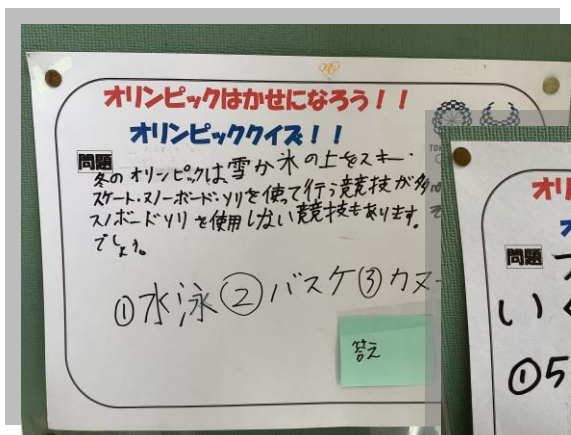 オリンピックはかせになろう！！
オリンピッククイズ！！
問題
冬のオリンピックは、雪か氷の上をスキー・
スケート・スノーボード・ソリを使って行う競技が多
スノボードソリを使用しない競技もあります。そ
でしょう。
①水泳②バスケ③カヌー
答え
オリ
問題
いく
①5